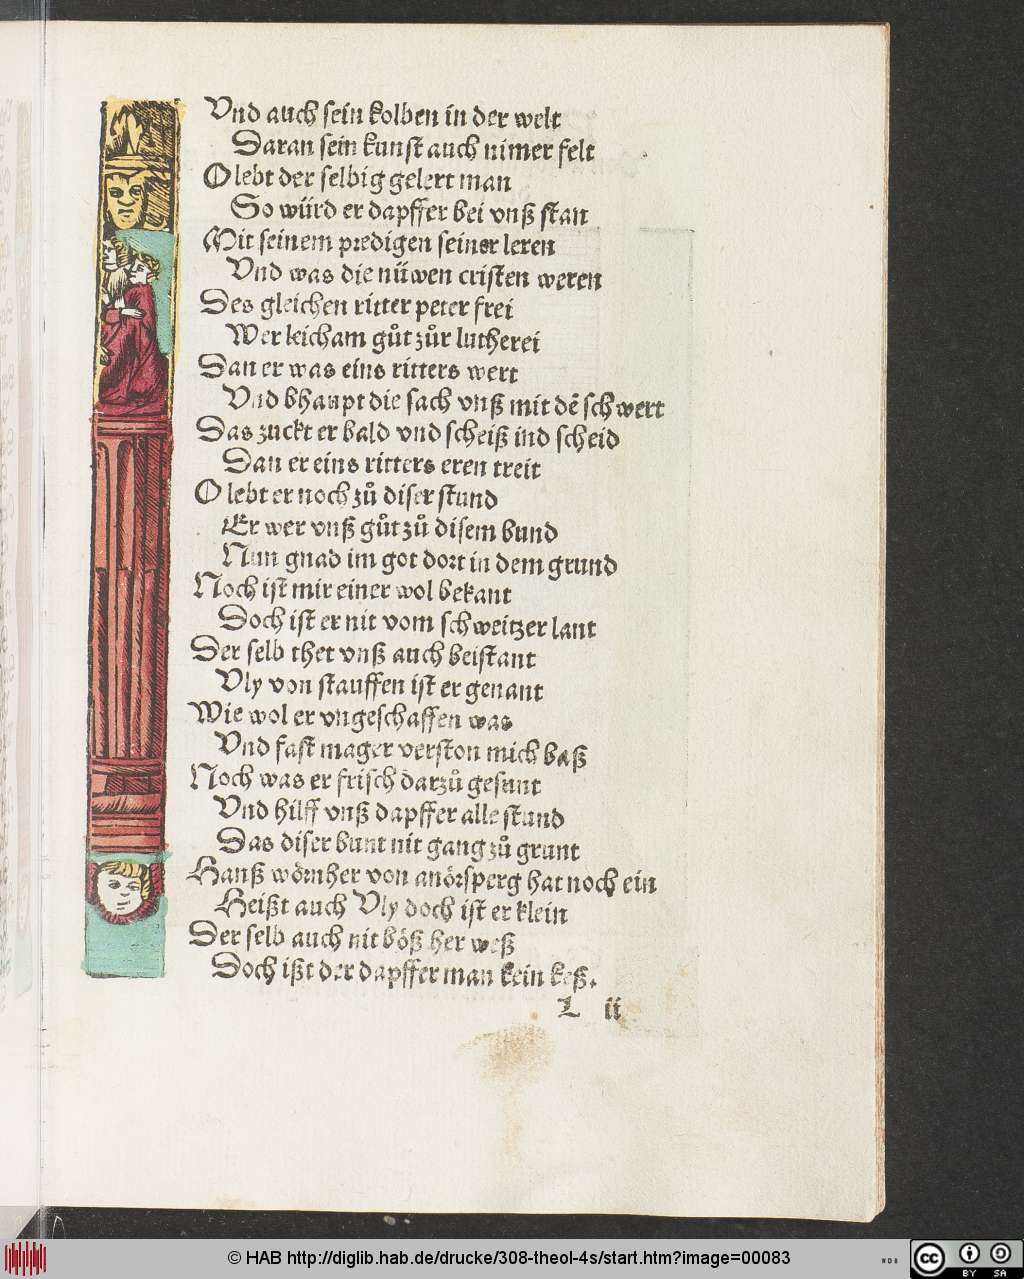 Vnd auch sein kolben in der welt
Daran sein kunst auch nimer felt
O lebt der selbig gelert man
So würd er dapffer bei vnß stan
Mit seinem predigen seiner leren
Vnd was die nüwen cristen weren
Des gleichen ritter peter frei
Wer leicham gůt zůr lutherei
Dan er was eins ritters wert
Vnd bhaupt die sach vnß mit dē schwert
Das zuckt er bald vnd scheiß ind scheid
Dan er eins ritters eren treit
O lebt er noch zů diser stund
Er wer vnß gůt zů disem bund
Nun gnad im got dort in dem grund
Noch ist mir einer wol bekant
Doch ist er nit vom schweitzer lant
Der selb thet vnß auch beistant
Vly von stauffen ist er genant
Wie wol er vngeschaffen was
Vnd fast mager verston mich baß
Noch was er frisch darzů gesunt
Vnd hilff vnß dapffer alle stund
Das diser bunt nit gang zů grunt
Hanß wörnher von anörsperg hat noch ein
Heißt auch Vly doch ist er klein
Der selb auch nit böß her weß
Doch ißt der dapffer man kein keß.
L ii
© HAB http://diglib.hab.de/drucke/308-theol-4s/start.htm?image=00083
WDB
cc
BY SA